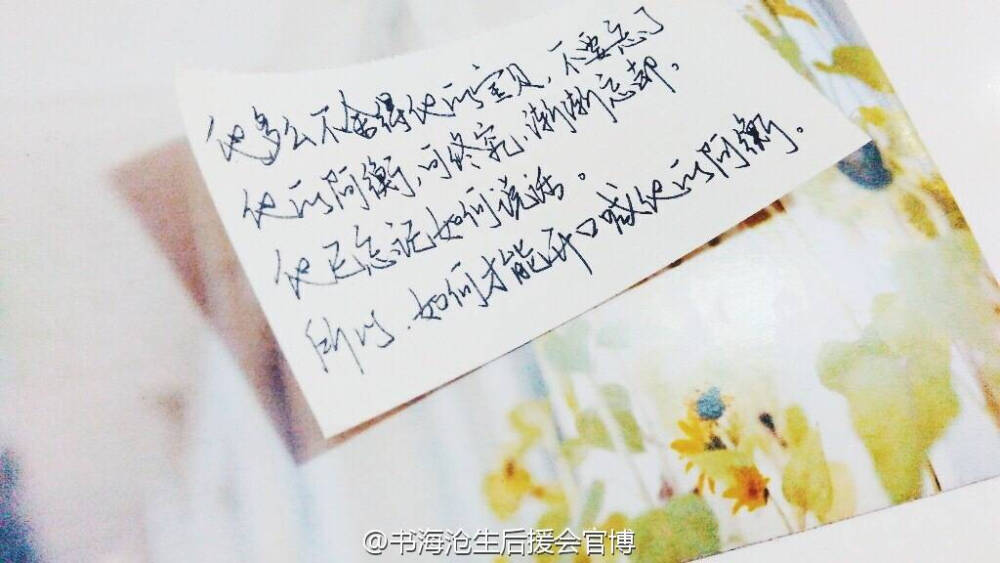 他多么不舍得他的宝贝，不要忘了
他的阿衡，可终究，渐渐忘却。
他已忘记如何说话。
所以，如何才能开口喊他的阿衡。
@书海沧生后援会官博